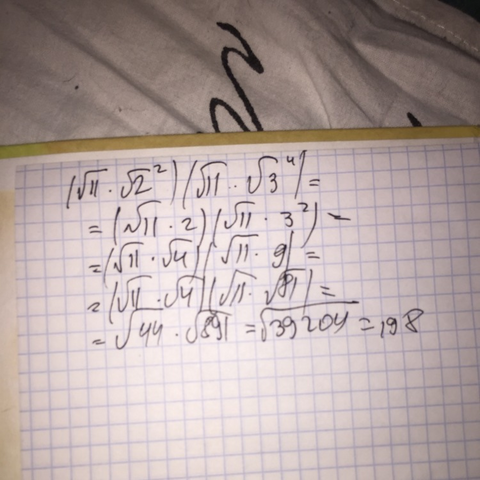 (√11 · √2²)(√11 · √3⁴) =
= (√11 · 2)(√11 · 3²) -
= (√11 · √4)(√11 · 9) =
= (√11 · √4)(√11 · √81) =
= √44 · √891 = √39204 = 198